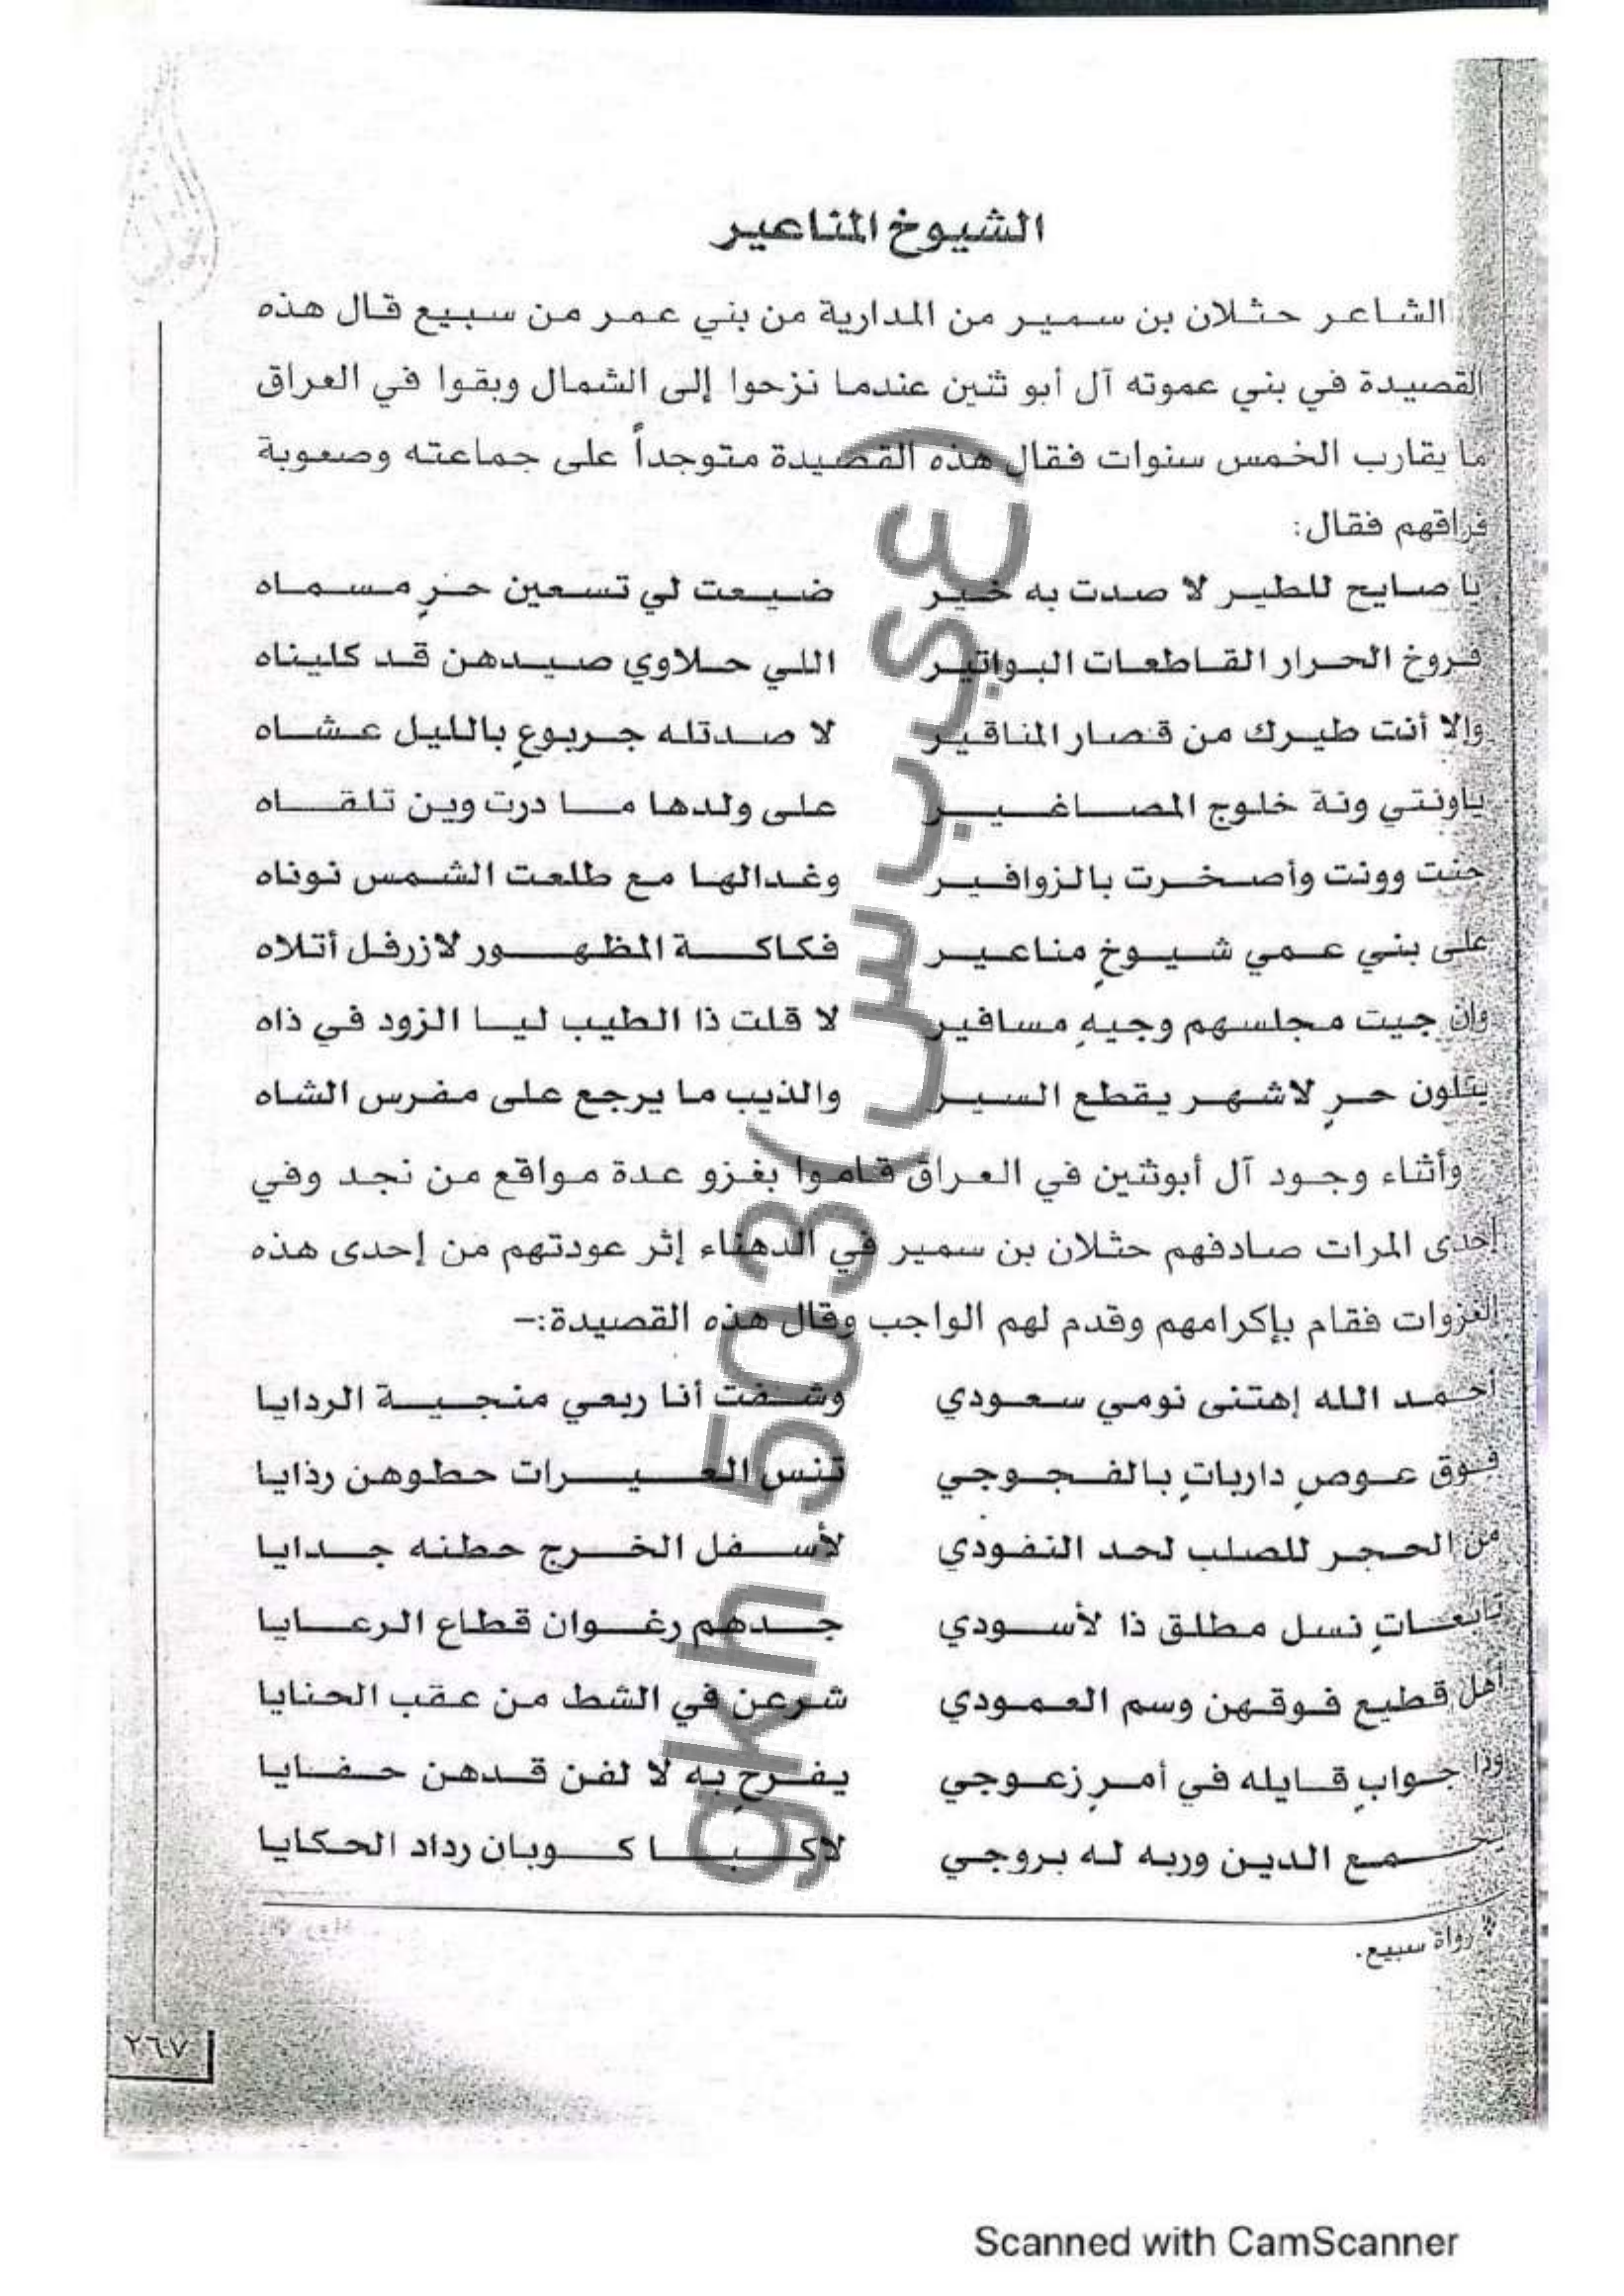 الشيوخ المناعير
الشاعر حثلان بن سمير من المدارية من بني عمر من سبيع قال هذه
القصيدة في بني عموته آل أبو ثنين عندما نزحوا إلى الشمال وبقوا في العراق
ما يقارب الخمس سنوات فقال هذه القصيدة متوجداً على جماعته وصعوبة
فراقهم فقال:
يا صايح للطير لا صدت به خير ضيعت لي تسعين حرٍ مسماه
فروخ الحرار القاطعات البواتير اللي حلاوي صيدهن قد كليناه
وإلا أنت طيرك من قصار المناقير لا صدتله جربوعٍ بالليل عشاه
ياونتي ونة خلوج المصاغير على ولدها ما درت وين تلقاه
حنت وونت وأصخرت بالزوافير وغدالها مع طلعت الشمس نوناه
على بني عمي شيوخٍ مناعير فكاكة المظهور لازرفل أتلاه
وإن جيت مجلسهم وجيهٍ مسافير لا قلت ذا الطيب ليا الزود في ذاه
يتلون حرٍ لاشهر يقطع السير والذيب ما يرجع على مفرس الشاه
وأثناء وجود آل أبوثنين في العراق قاموا بغزو عدة مواقع من نجد وفي
إحدى المرات صادفهم حثلان بن سمير في الدهناء إثر عودتهم من إحدى هذه
الغزوات فقام بإكرامهم وقدم لهم الواجب وقال هذه القصيدة:–
أحمد الله إهتنى نومي سعودي وشفت أنا ربعي منجية الردايا
فوق عوصٍ دارباتٍ بالفجوجي قنس العيرات حطوهن رذايا
من الحجر للصلب لحد النفودي لأسفل الخرج حطنه جدايا
تابعاتٍ نسل مطلق ذا لأسودي جدهم رغوان قطاع الرعايا
أهل قطيع فوقهن وسم العمودي شرعن في الشط من عقب الحنايا
وذا جوابٍ قايله في أمرٍ زعوجي يفرح به لا لفن قدهن حفايا
الدين وربه له بروجي كوبان رداد الحكايا
رواة سبيع.
٢٦٧
gkh503(سبيعي)
Scanned with CamScanner